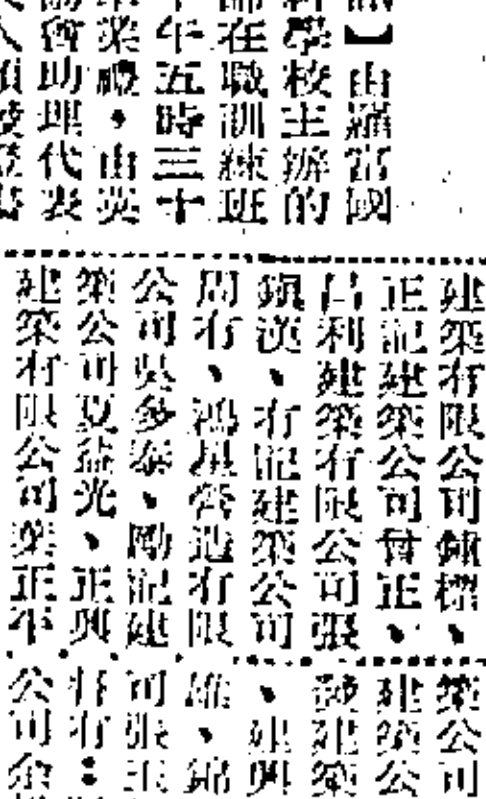 訊】由羅富國
學校主辦的
在職訓練班
午五時三十
業禮・由英
會助理代表
建築有限公司鍾標、
正記建築公司曾正、
昌利建築有限公司張
鎮漢、有記建築公司
周有、鴻星營造有限
公司吳多泰、勵記建
築公司夏益光、正興
建築有限公司葉正平
築公司
建築公司
建築
、建興
雄、錦
司張玉
好有：
公司余